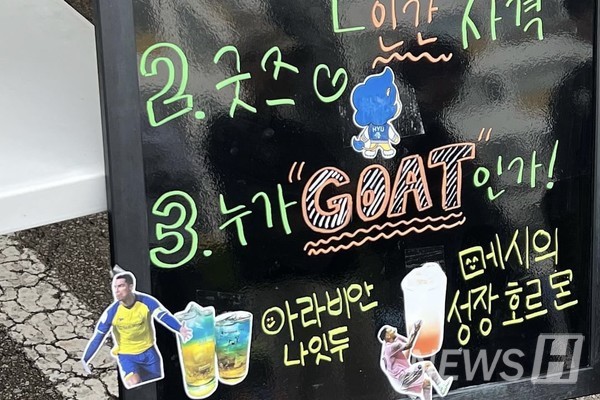 인간 사격
2. 굿즈 ♡
HYU
3. 누가 "GOAT" 인가!
아라비안
나잇두
메시의
성장 호르몬
NEWS H